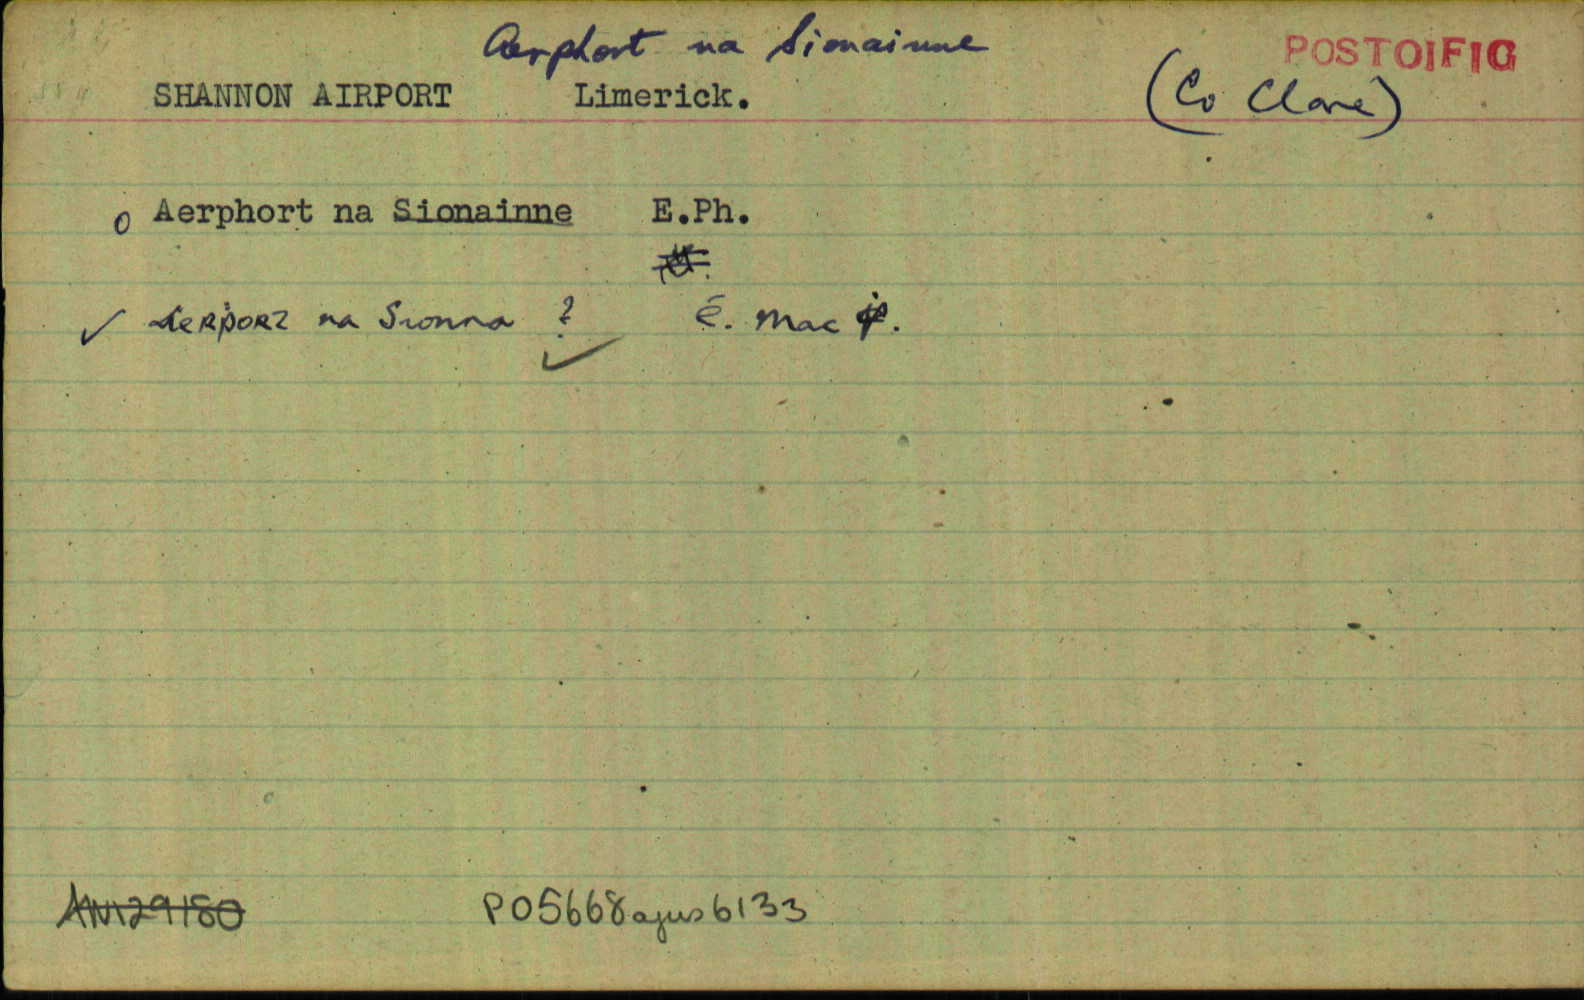 Aerphort na Sionainne
POSTOIFIG
SHANNON AIRPORT Limerick. (Co Clare)
o Aerphort na Sionainne E.Ph.
✓ Aerṗort na Sionna ? É. Mac
✓
AN129180
PO5668 agus 6133